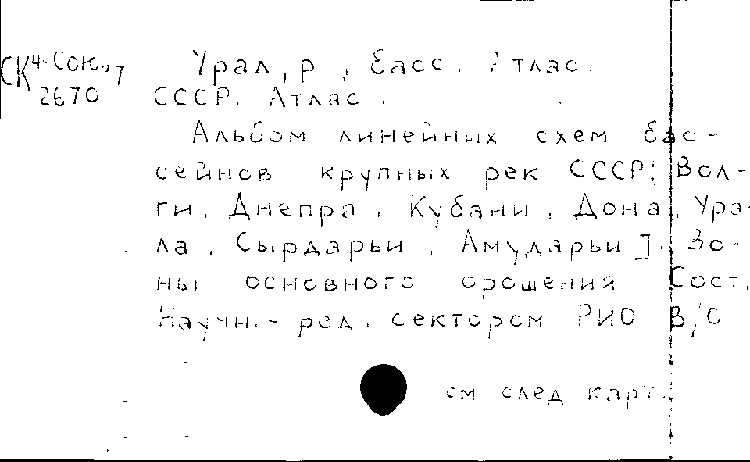 СК 4-Союз 7
2670
Урал, р., басс. Атлас.
СССР. Атлас.
Альбом линейных схем бас-
сейнов крупных рек СССР: Вол-
ги, Днепра, Кубани, Дона, Ура-
ла, Сырдарьи, Амударьи]. Зо-
ны основного орошения Сост.
Научн.-ред. сектором РИО В/О
см след карт.